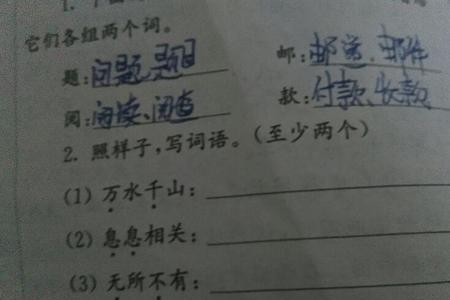 它们各组两个词。
题:问题 题目 邮:邮寄、邮件
阅:阅读、阅查 款:付款、收款
2. 照样子,写词语。(至少两个)
(1) 万水千山:
(2) 息息相关:
(3) 无所不有: